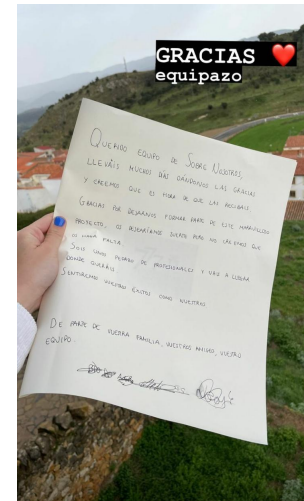 GRACIAS ❤️
equipazo
QUERIDO EQUIPO DE SOBRE NOSOTROS,
LLEVÁIS MUCHOS DÍAS DÁNDONOS LAS GRACIAS
Y CREEMOS QUE ES HORA DE QUE LAS RECIBÁIS
GRACIAS POR DEJARNOS FORMAR PARTE DE ESTE MARAVILLOSO
PROYECTO, OS DESEARÍAMOS SUERTE PERO NO CREEMOS QUE
OS HAGA FALTA.
SOIS UNOS PEDAZO DE PROFESIONALES Y VAIS A LLEGAR
DONDE QUERÁIS
SENTIREMOS VUESTRO ÉXITO COMO NUESTRO
DE PARTE DE VUESTRA FAMILIA, VUESTROS AMIGOS, VUESTRO
EQUIPO.